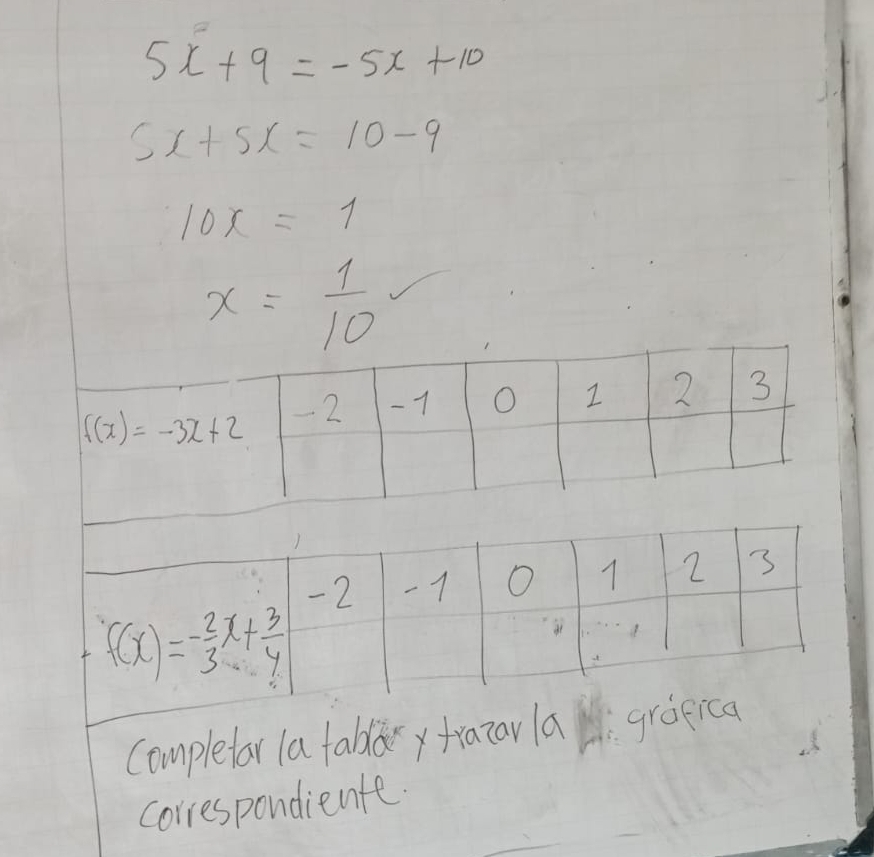 5x+9 = -5x +10
5x+5x = 10-9
10x = 1
x = 1/10 ✓
f(x) = -3x+2 -2 -1 0 1 2 3
f(x) = -2/3x+3/4 -2 -1 0 1 2 3
Completar la tabla y trazar la gráfica
correspondiente.